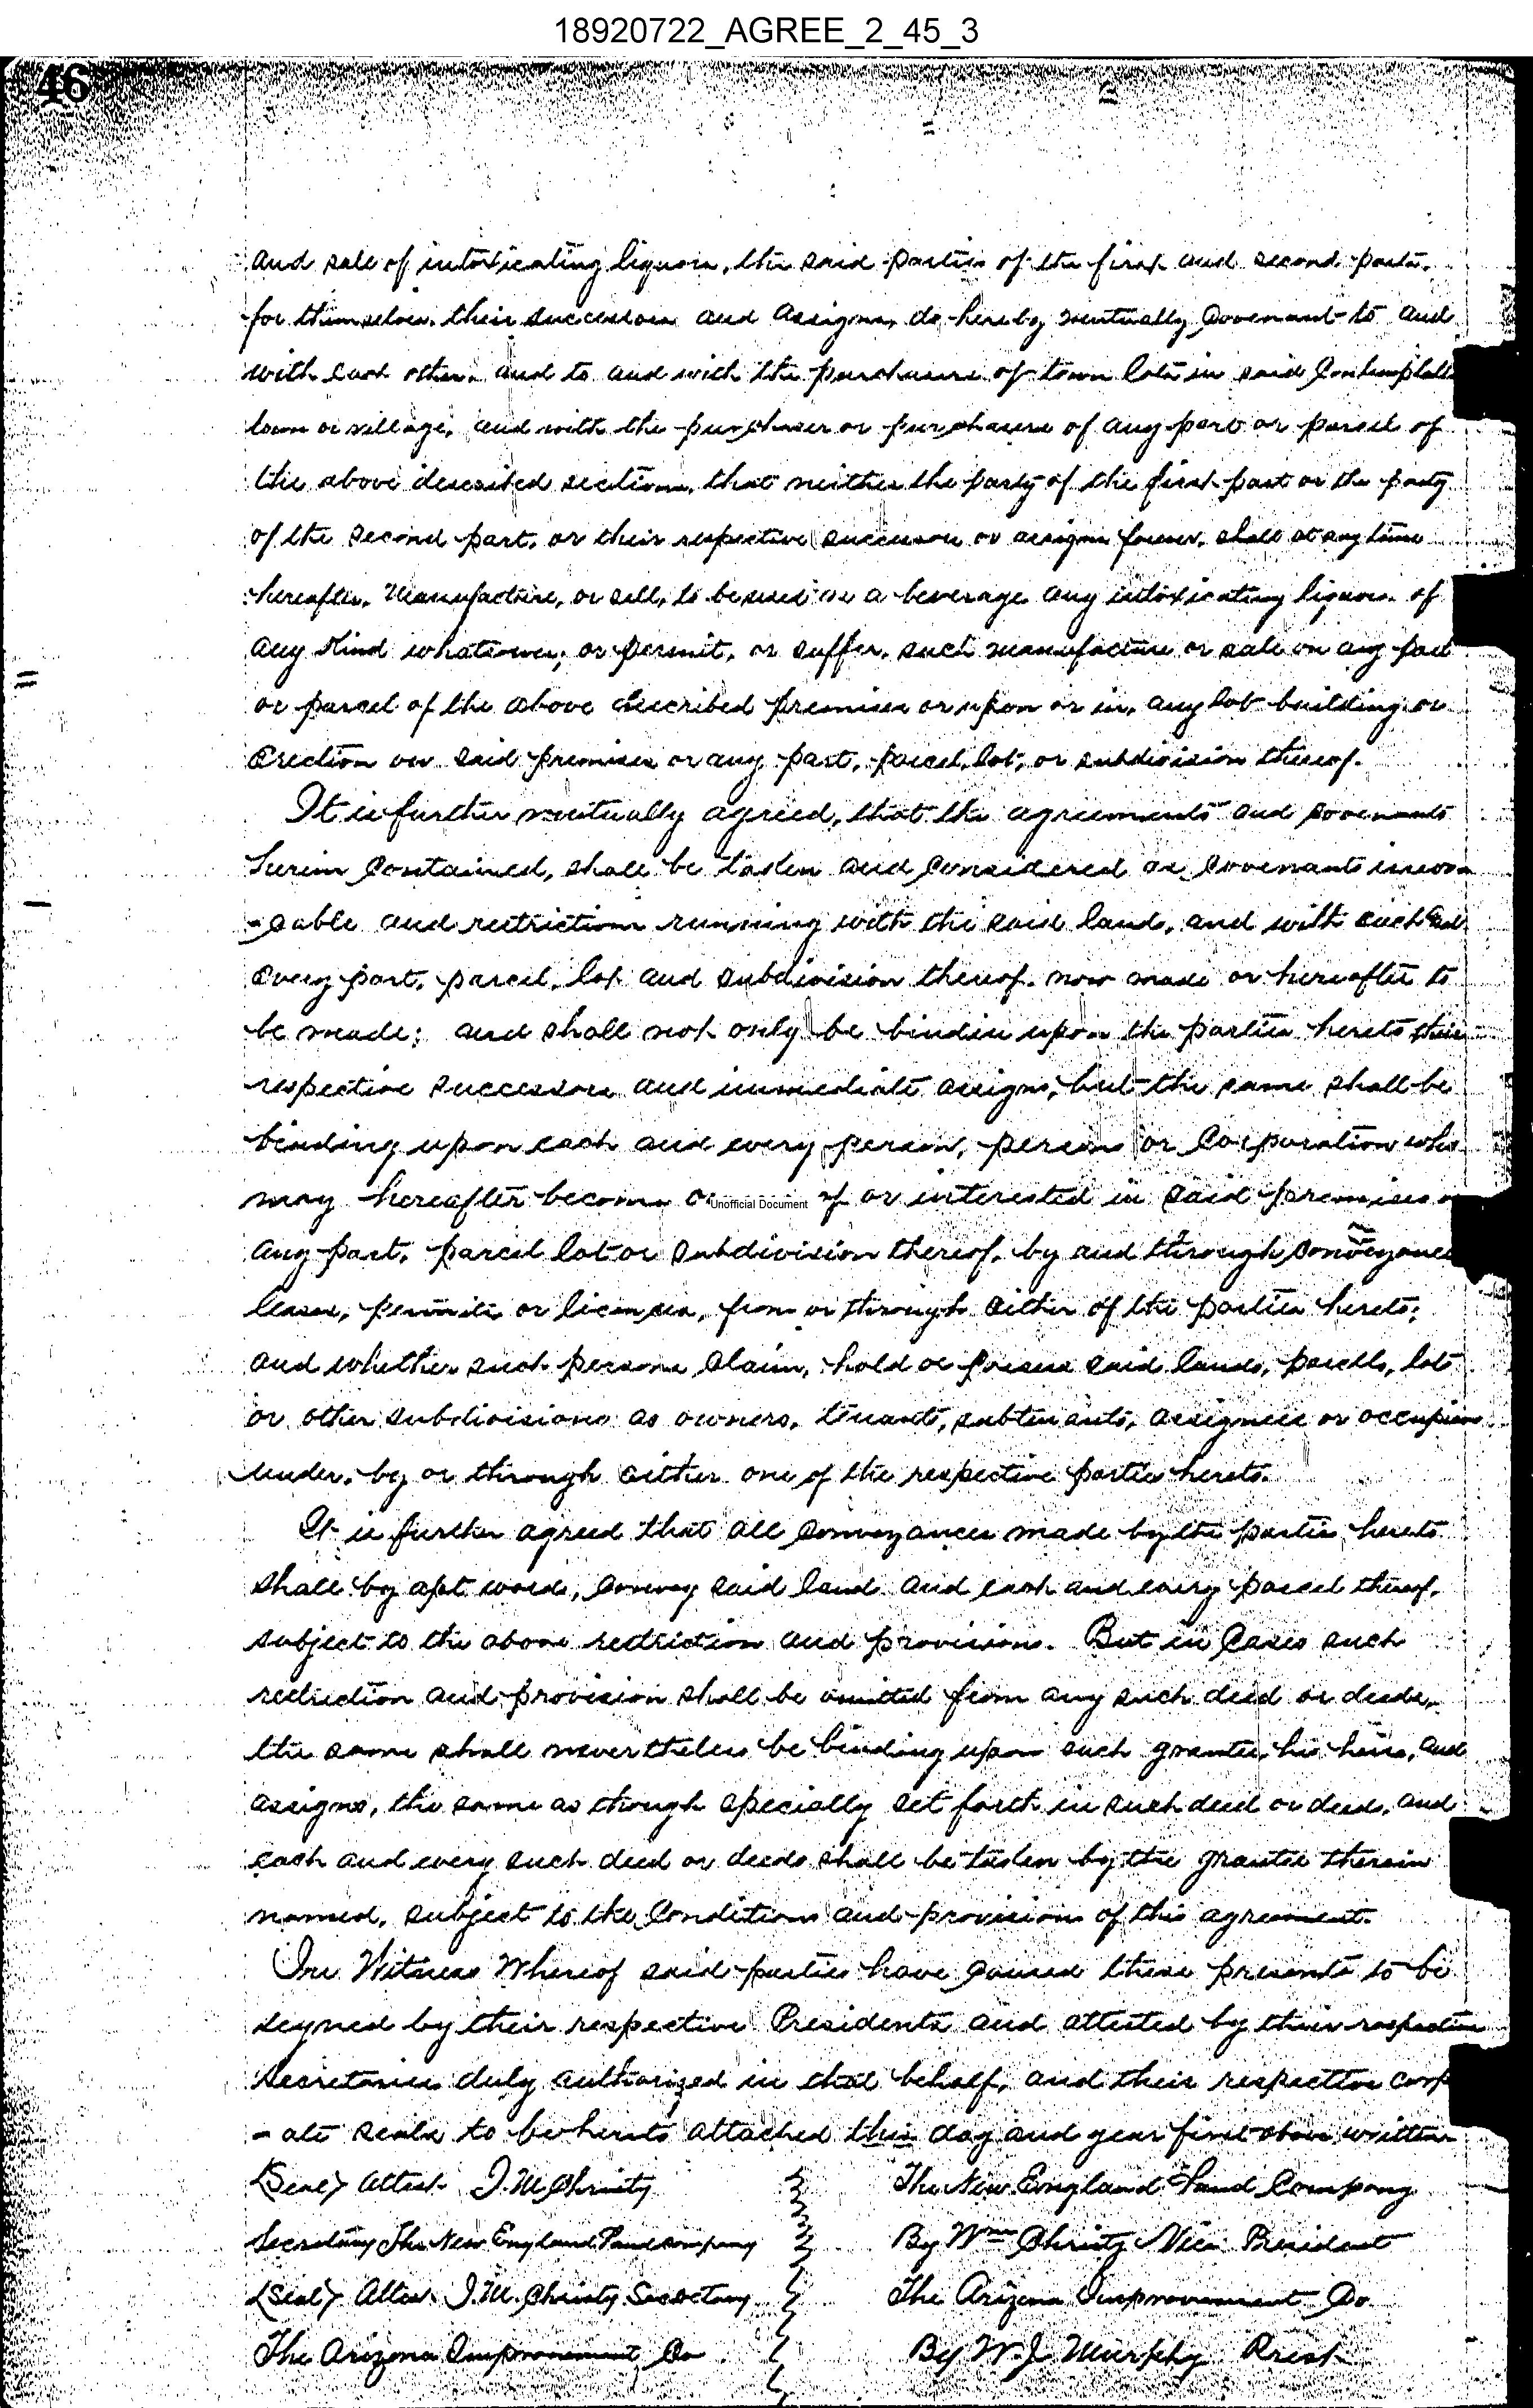 18920722_AGREE_2_45_3
46
and sale of intoxicating liquors, the said parties of the first and second parts,
for themselves, their successors and assigns, do hereby mutually Covenant to and
with each other, and to and with the purchasers of town lots in said Contemplated
town or village, and with the purchaser or purchasers of any part or parcel of
the above described sections, that neither the party of the first part or the party
of the second part, or their respective successors or assigns forever, shall at any time
hereafter, Manufacture, or sell, to be used as a beverage any intoxicating liquors of
any kind whatsoever, or permit, or suffer, such manufacture or sale on any part
or parcel of the above described premises or upon or in, any lot building or
Erection on said premises or any part, parcel, lot, or subdivision thereof.
It is further mutually agreed, that the agreements and covenants
herein Contained, shall be taken and Considered as Covenants irrevo
-cable and restrictions running with the said lands, and with each and
every part, parcel, lot and subdivision thereof, now made or hereafter to
be made; and shall not only be bindin upon the parties hereto their
respective successors and immediate assigns, but the same shall be
binding upon each and every person, persons or Corporation who
may hereafter become Unofficial Document of or interested in said premises or
any part, parcel lot or subdivision thereof, by and through conveyances
leases, permits or licenses, from or through either of the parties hereto;
and whether such persons claim, hold or possess said lands, parcells, lots
or other subdivisions as owners, tenants, subtenants, assignees or occupiers
under, by or through either one of the respective parties hereto.
It is further agreed that all Conveyances made by the parties hereto
shall by apt words, Convey said land and each and every parcel thereof,
subject to the above restriction and provisions. But in Cases such
restriction and provision shall be omitted from any such deed or deeds,
the same shall nevertheless be binding upon such grantee, his heirs, and
assigns, the same as though specially set forth in such deed or deeds, and
each and every such deed or deeds shall be taken by the grantee therein
named, subject to the Conditions and provisions of this agreement.
In Witness Whereof said parties have caused these presents to be
signed by their respective Presidents and attested by their respective
Secretaries duly authorized in that behalf, and their respective corp
-ate seals to be hereto attached this day and year first above written
(Seal) Attest J. M. Christy The New England Land Company
Secretary The New England Land Company By Wm Christy Vice President
(Seal) Attest J. M. Christy Secretary The Arizona Improvement Co.
The Arizona Improvement Co By W. J. Murphy Prest